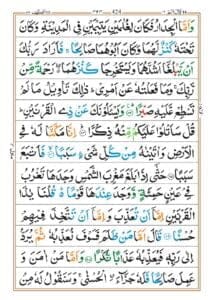 وَاَمَّا الْجِدَارُ فَكَانَ لِغُلٰمَيْنِ يَتِيْمَيْنِ فِي الْمَدِيْنَةِ وَكَانَ
تَحْتَهٗ كَنْزٌ لَّهُمَا وَكَانَ اَبُوْهُمَا صَالِحًا ۚ فَاَرَادَ رَبُّكَ
اَنْ يَّبْلُغَاۤ اَشُدَّهُمَا وَيَسْتَخْرِجَا كَنْزَهُمَا ۖ رَحْمَةً مِّنْ
رَّبِّكَ ۚ وَمَا فَعَلْتُهٗ عَنْ اَمْرِيْ ؕ ذٰلِكَ تَاْوِيْلُ مَا لَمْ
تَسْطِعْ عَّلَيْهِ صَبْرًا ۞ وَيَسْـَٔلُوْنَكَ عَنْ ذِي الْقَرْنَيْنِ ؕ
قُلْ سَاَتْلُوْا عَلَيْكُمْ مِّنْهُ ذِكْرًا ۞ اِنَّا مَكَّنَّا لَهٗ فِي
الْاَرْضِ وَاٰتَيْنٰهُ مِنْ كُلِّ شَيْءٍ سَبَبًا ۞ فَاَتْبَعَ
سَبَبًا ۞ حَتّٰۤى اِذَا بَلَغَ مَغْرِبَ الشَّمْسِ وَجَدَهَا تَغْرُبُ
فِيْ عَيْنٍ حَمِئَةٍ وَّوَجَدَ عِنْدَهَا قَوْمًا ؕ قُلْنَا يٰذَا
الْقَرْنَيْنِ اِمَّاۤ اَنْ تُعَذِّبَ وَاِمَّاۤ اَنْ تَتَّخِذَ فِيْهِمْ
حُسْنًا ۞ قَالَ اَمَّا مَنْ ظَلَمَ فَسَوْفَ نُعَذِّبُهٗ ثُمَّ يُرَدُّ
اِلٰى رَبِّهٖ فَيُعَذِّبُهٗ عَذَابًا نُّكْرًا ۞ وَاَمَّا مَنْ اٰمَنَ وَ
عَمِلَ صَالِحًا فَلَهٗ جَزَآءَ ۨالْحُسْنٰى ۚ وَسَنَقُوْلُ لَهٗ مِنْ